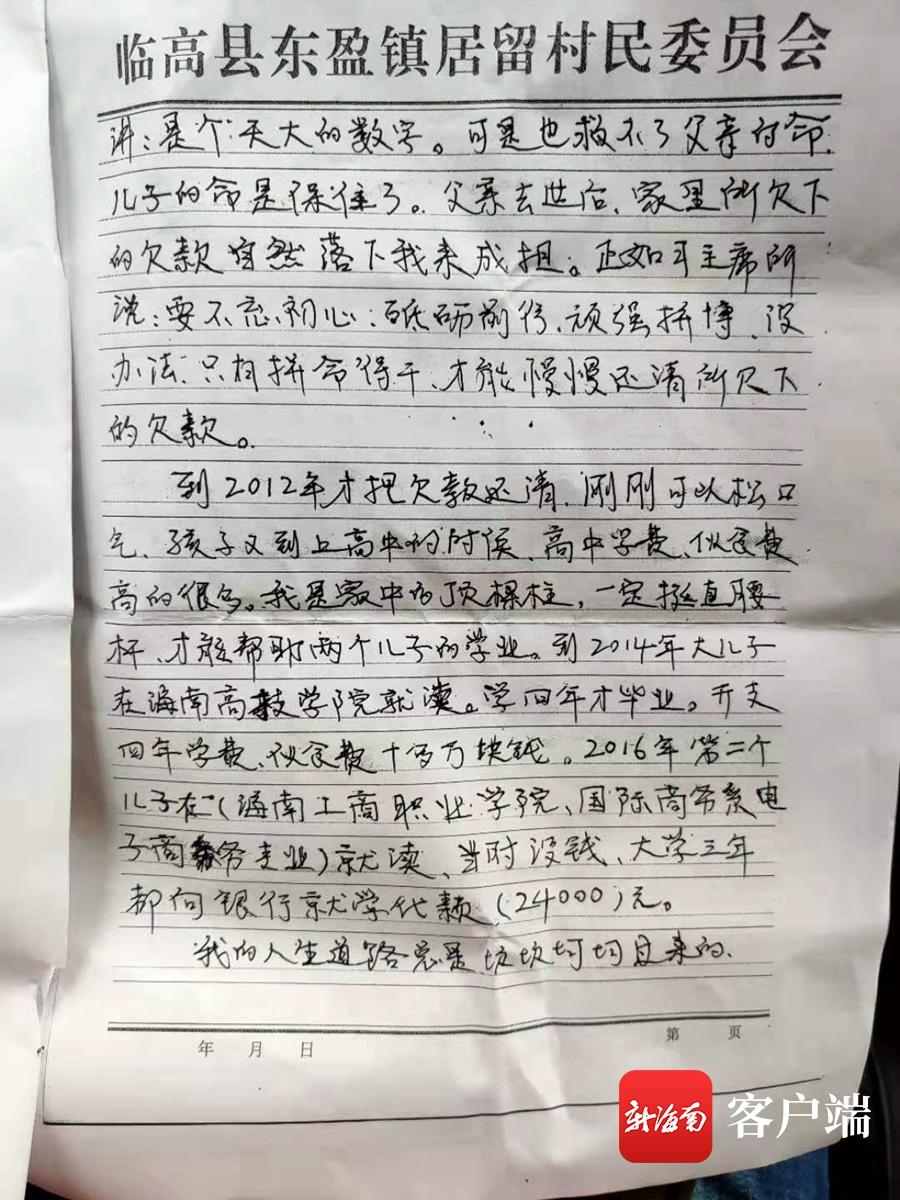 临高县东盈镇居留村民委员会
讲:是个天大的数字。可是也救不了父亲的命.
儿子的命是保住了。父亲去世后、家里所欠下
的欠款自然落下我来成担。正如习主席所
说:要不忘初心:砥砺前行、顽强拼博、没
办法.只有拼命得干、才能慢慢还清所欠下
的欠款。
到2012年才把欠款还清、刚刚可以松口
气、孩子又到上高中的时候、高中学费、伙食费
高的很多。我是家中的顶樑柱,一定挺直腰
杆、才能帮助两个儿子的学业。到2014年大儿子
在海南高技学院就读。学四年才毕业。开支
四年学费、伙食费十多万块钱。2016年第二个
儿子在(海南工商职业学院、国际商务系电
子商务专业)就读、当时没钱、大学三年
都向银行就学代款(24000)元。
我的人生道路总是坎坎坷坷过来的.
年 月 日
第 页
新海南 客户端